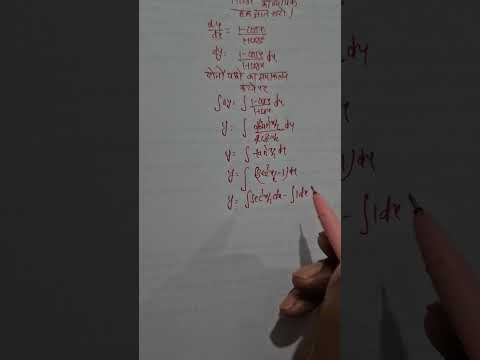 हल ज्ञात करो।
dy/dx = 1-cosx/1+cosx
dy = 1-cosx/1+cosx dx
दोनों पक्षों का समाकलन
करने पर
∫dy = ∫ 1-cosx/1+cosx dx
y = ∫ 2sin²x/2/2cos²x/2 dx
y = ∫ tan²x/2 dx
y = ∫ (sec²x/2 - 1) dx
y = ∫sec²x/2 dx - ∫1dx
- ∫1dx